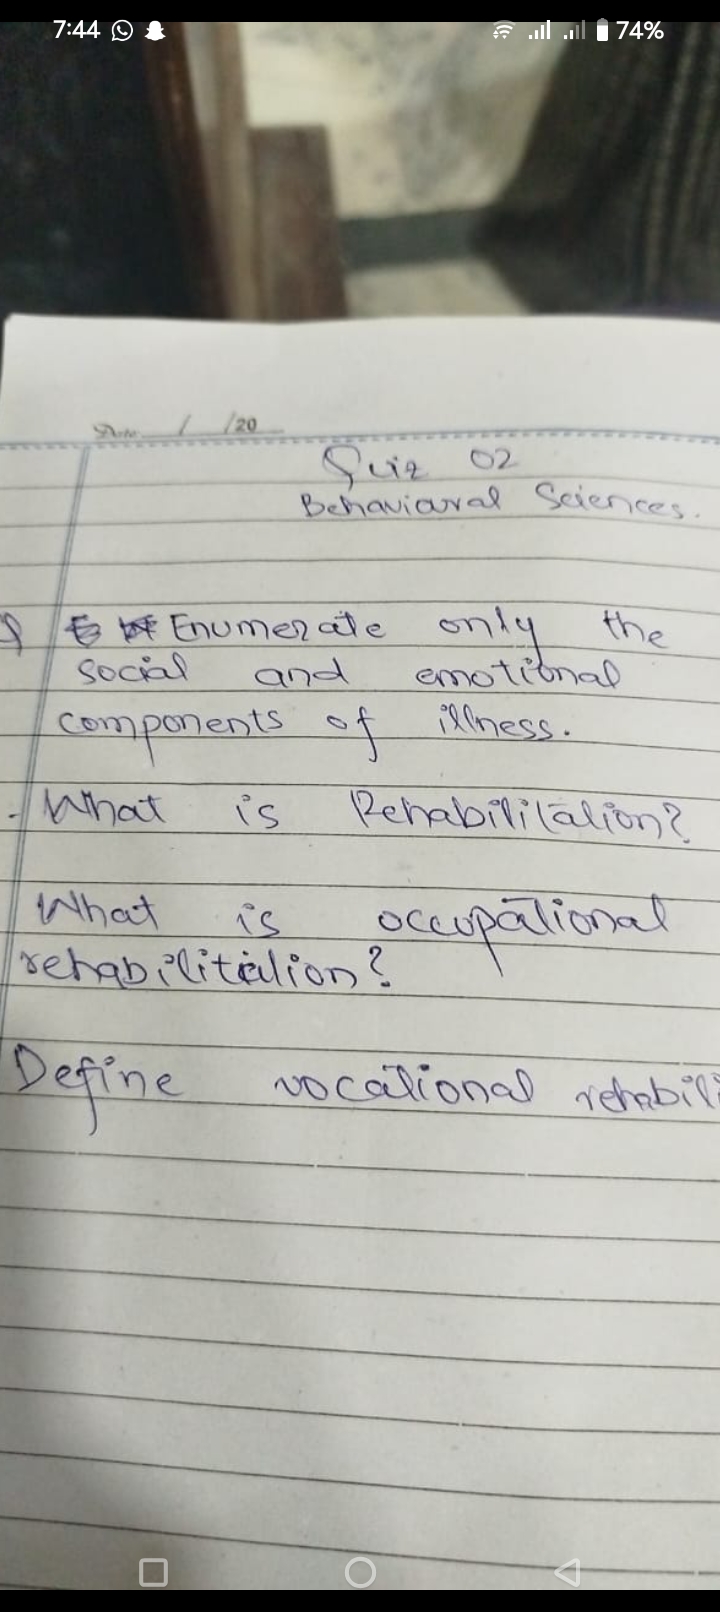 7:44
74%
/ /20
Quiz 02
Behavioural Sciences.
Enumerate only the
social and emotional
components of illness.
What is Rehabilitation?
What is occupational
rehabilitation?
Define vocational rehabili